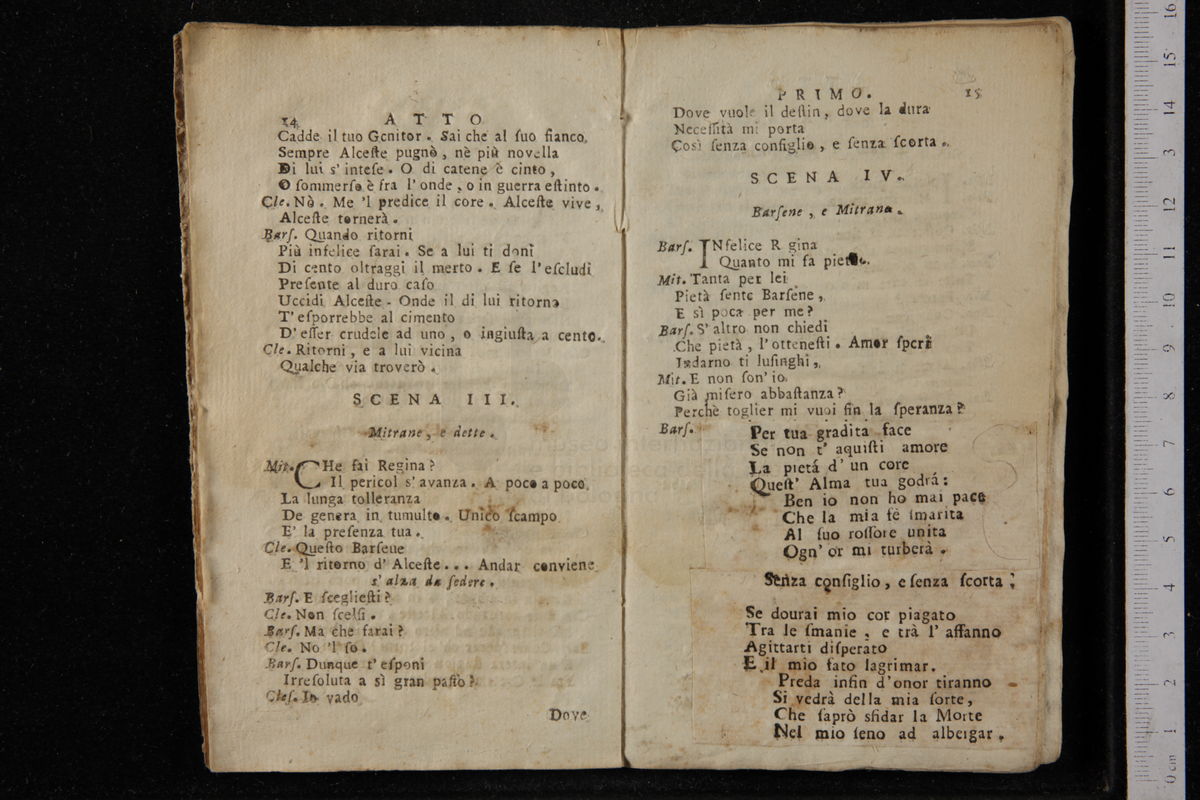 14 ATTO
Cadde il tuo Genitor. Sai che al ſuo fianco,
Sempre Alceſte pugnò, nè più novella
Di lui s'inteſe. O di catene è cinto,
O ſommerſo è fra l'onde, o in guerra eſtinto.
Cle. Nò. Me 'l predice il core. Alceſte vive,
Alceſte tornerà.
Barſ. Quando ritorni
Più infelice ſarai. Se a lui ti doni
Di cento oltraggi il merto. E ſe l'eſcludi
Preſente al duro caſo
Uccidi Alceſte - Onde il di lui ritorno
T'eſporrebbe al cimento
D'eſſer crudele ad uno, o ingiuſta a cento.
Cle. Ritorni, e a lui vicina
Qualche via troverò.
SCENA III.
Mitrane, e dette.
Mit. CHe fai Regina?
Il pericol s'avanza. A poco a poco
La lunga tolleranza
De genera in tumulto. Unico ſcampo
E' la preſenza tua.
Cle. Queſto Barſeue
E 'l ritorno d'Alceſte... Andar conviene
s'alza da ſedere.
Barſ. E ſceglieſti?
Cle. Non ſcelſi.
Barſ. Ma che farai?
Cle. No 'l ſo.
Barſ. Dunque t'eſponi
Irreſoluta a sì gran paſſo?
Cleſ. Io vado
Dove
PRIMO. 15
Dove vuole il deſtin, dove la dura
Neceſſità mi porta
Così ſenza conſiglio, e ſenza ſcorta.
SCENA IV.
Barſene, e Mitrane.
Barſ. INfelice R gina
Quanto mi fa
Mit. Tanta per lei
Pietà ſente Barſene,
E sì poca per me?
Barſ. S'altro non chiedi
Che pietà, l'otteneſti. Amor ſperi
Indarno ti luſinghi,
Mit. E non ſon' io
Già miſero abbaſtanza?
Perchè toglier mi vuoi fin la ſperanza?
Barſ. Per tua gradita face
Se non t'aquiſti amore
La pietá d'un core
Queſt' Alma tua godrá:
Ben io non ho mai pace
Che la mia fè ſmarita
Al ſuo roſſore unita
Ogn' or mi turberà.
Senza conſiglio, e ſenza ſcorta;
Se dourai mio cor piagato
Tra le ſmanie, e trà l'affanno
Agittarti diſperato
E il mio fato lagrimar.
Preda infin d'onor tiranno
Si vedrà della mia ſorte,
Che ſaprò sfidar la Morte
Nel mio ſeno ad albeigar.